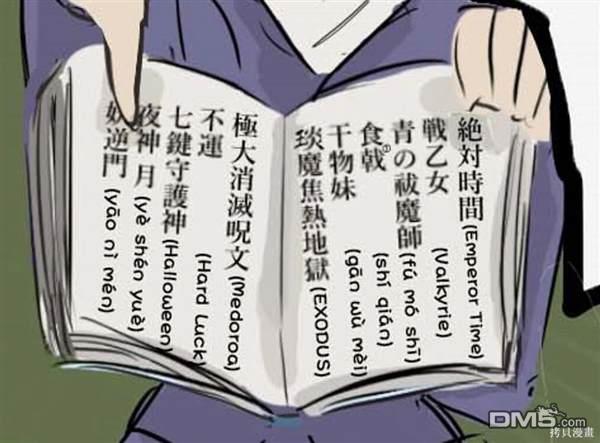 絶対時間(Emperor Time)
戦乙女(Valkyrie)
青の祓魔師(fú mó shī)
食戟②(shí qián)
干物妹(gān wù mèi)
琰魔焦熱地獄(EXODUS)
極大消滅呪文(Medoroa)
不運(Hard Luck)
七鍵守護神(Halloween)
夜神 月(yè shén yuè)
妖逆門(yāo nì mén)
DM5.com
拷貝漫畫